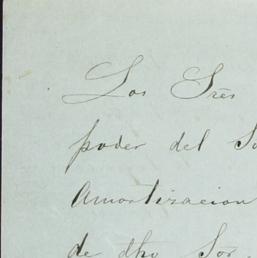 Los Sres
poder del
Amortizacion
de dho Sor.